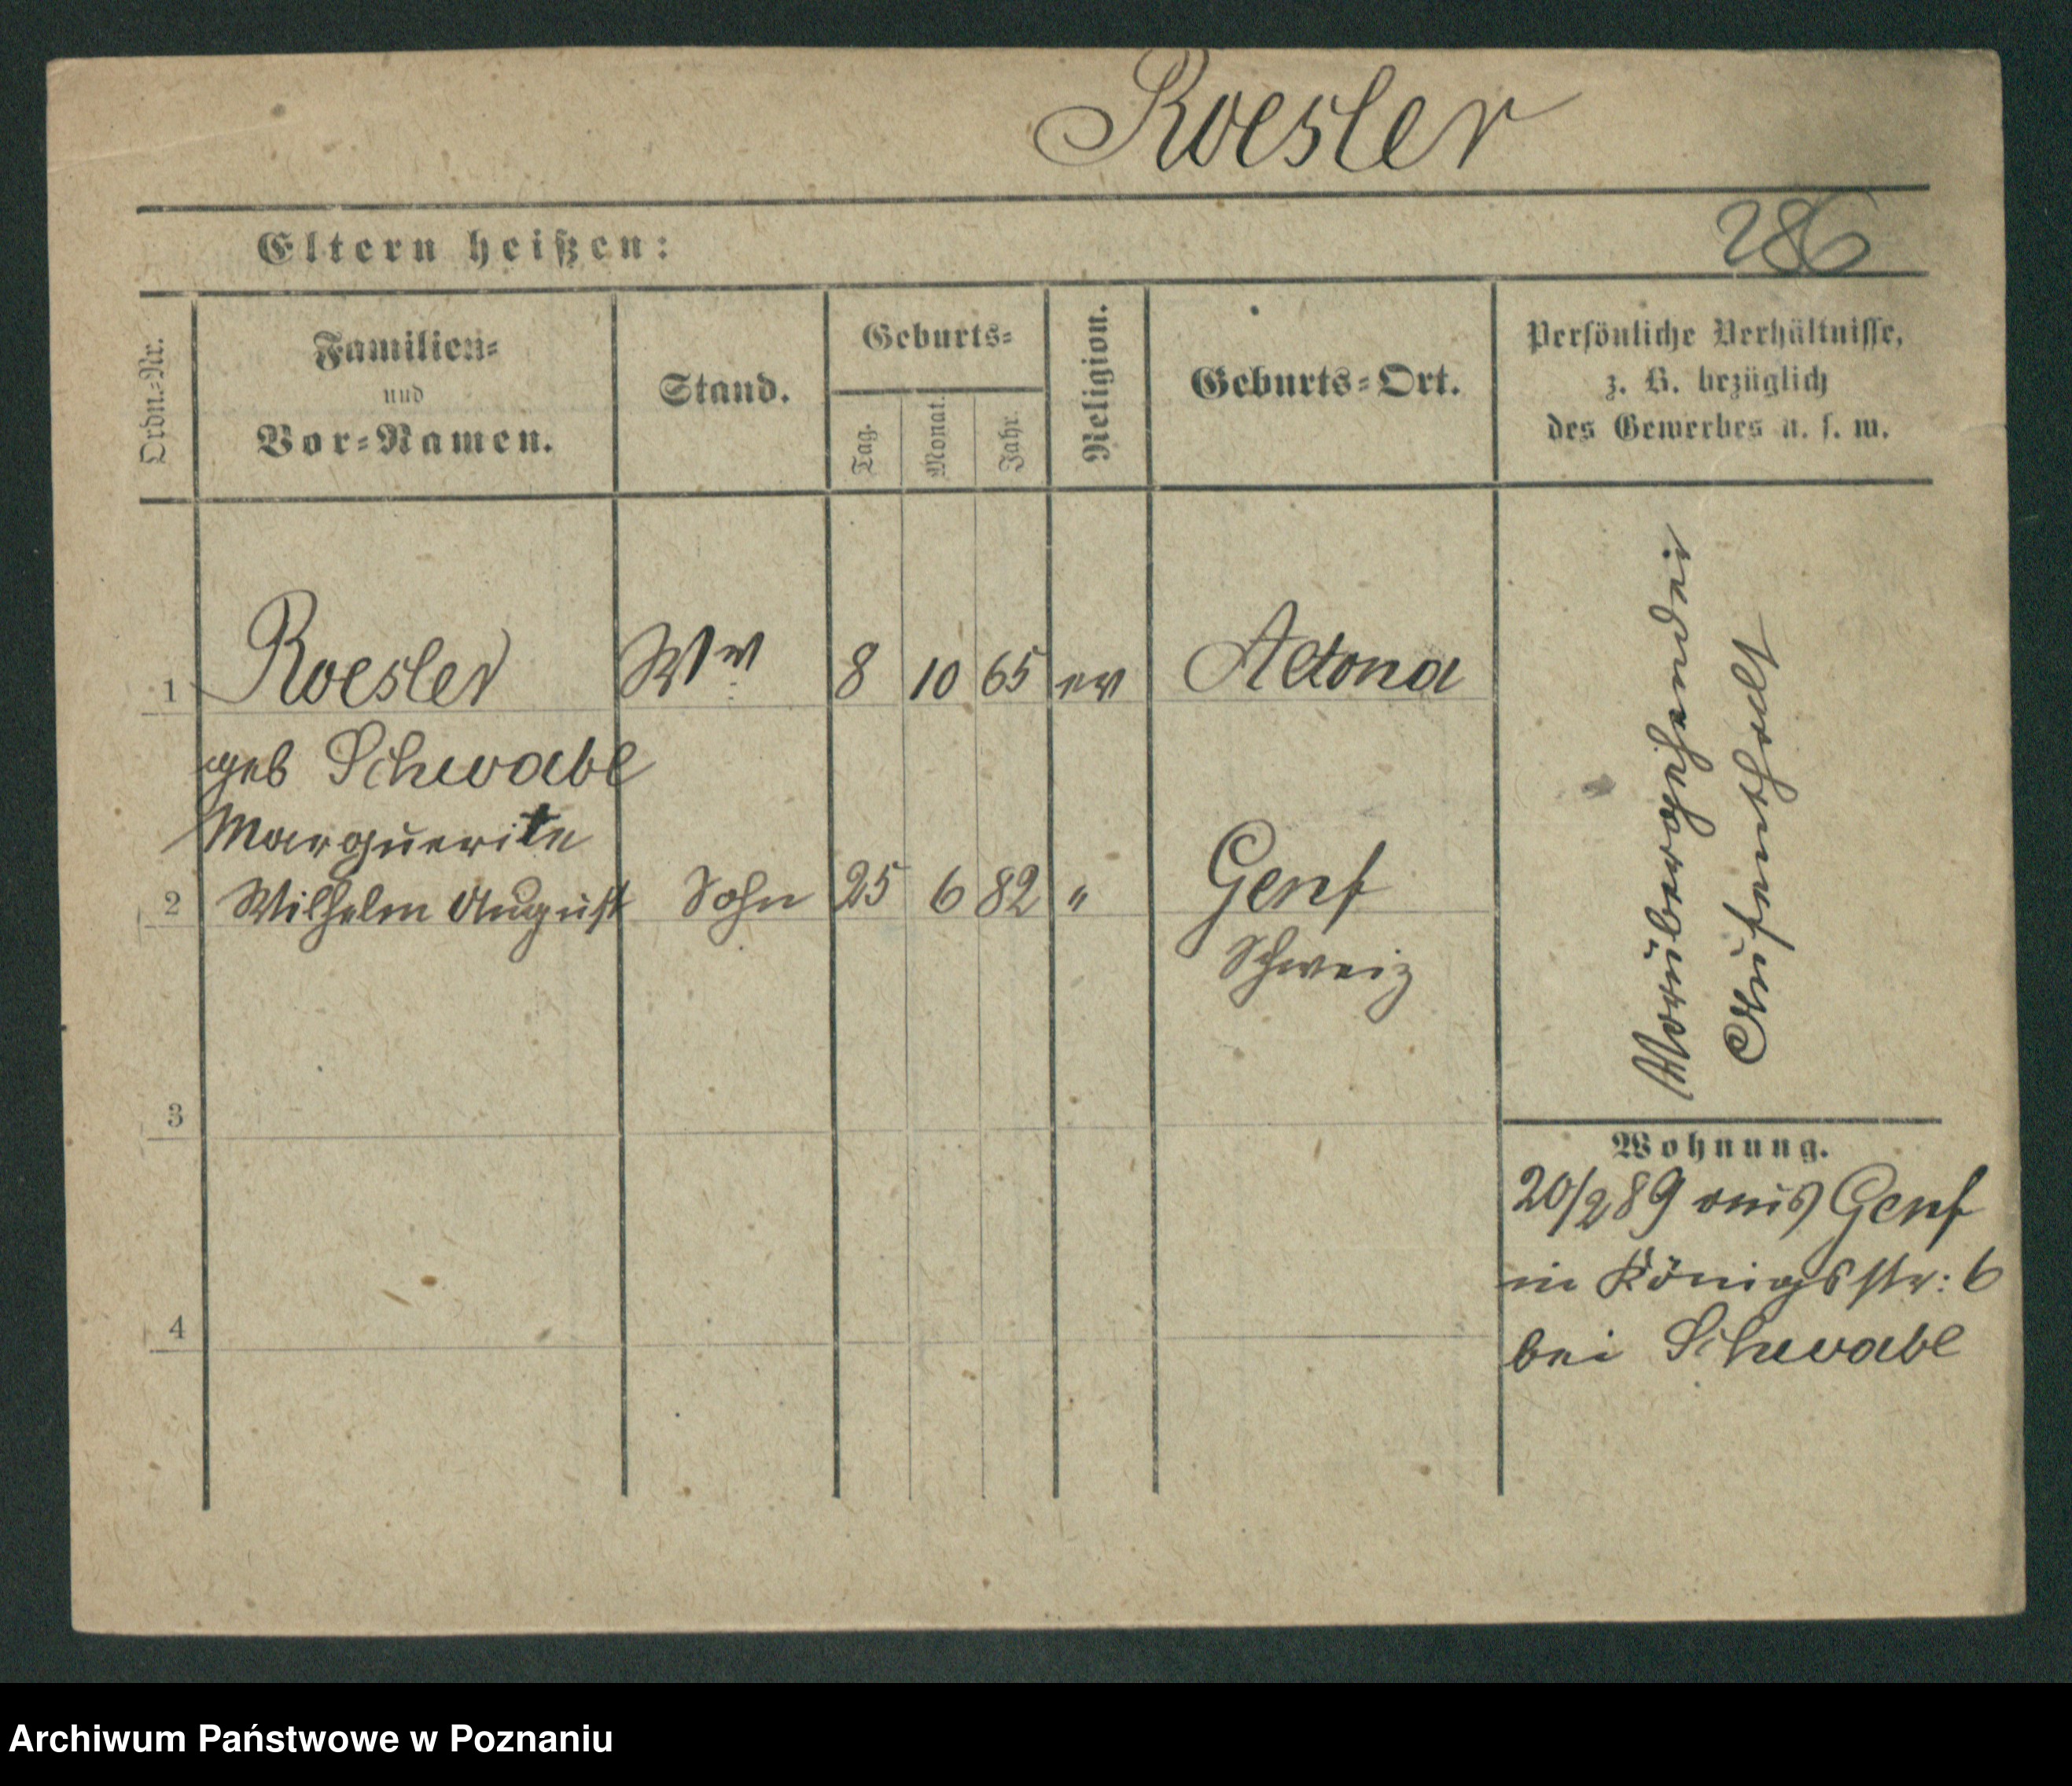 Roesler
286
Eltern heißen:
Ordn.-Nr.
Familien-
und
Vor-Namen.
Stand.
Geburts-
Tag.
Monat.
Jahr.
Religion.
Geburts-Ort.
Persönliche Verhältnisse,
z. B. bezüglich
des Gewerbes u. s. w.
1 Roesler Ww 8 10 65 ev Altona
geb Schwabe
Marguerite
2 Wilhelm August Sohn 25 6 82 " Genf
Schweiz
3
4
Vorübergehender
Aufenthalt
Wohnung.
20/2 89 aus Genf
in Königsstr: 6
bei Schwabe
Archiwum Państwowe w Poznaniu